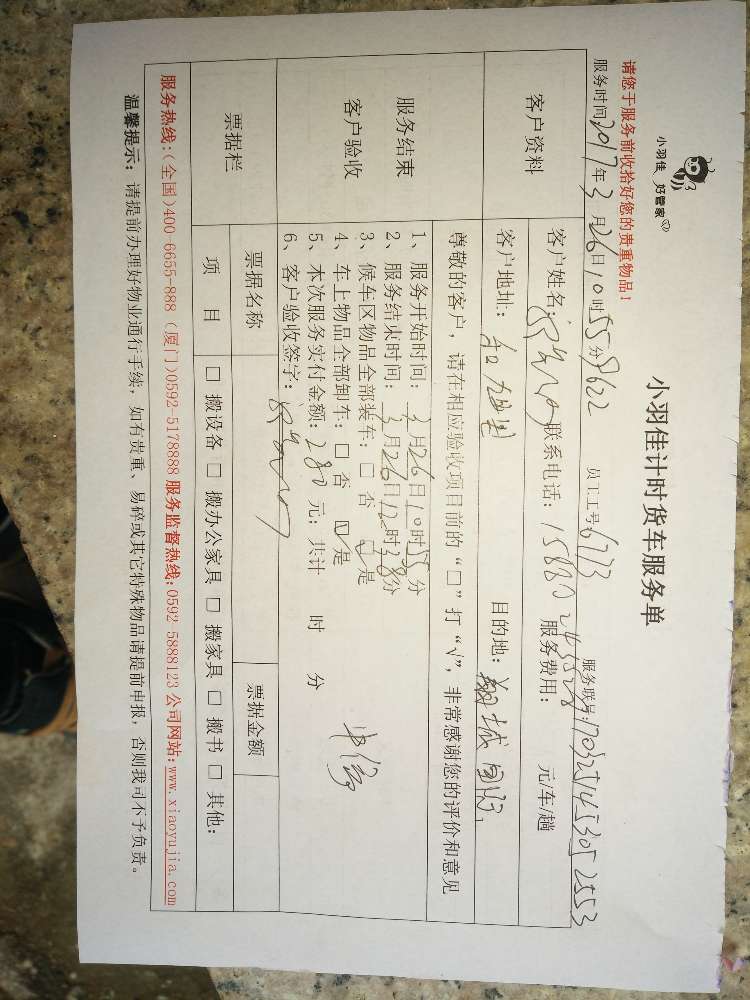 小羽佳 好管家
小羽佳计时货车服务单
请您于服务前收拾好您的贵重物品！
服务时间2017年3月26日10时55分 9622 员工工号:6713 服务联号:170325145305 2553
客户资料
客户姓名: 联系电话: 服务费用: 元/车/趟
客户地址: 目的地:
尊敬的客户，请在相应验收项目前的“□”打“√”，非常感谢您的评价和意见
服务结束
客户验收
1、服务开始时间: 3月26日10时55分
2、服务结束时间: 3月26日12时38分
3、候车区物品全部装车: □ 否 ☑ 是
4、车上物品全部卸车: □ 否 ☑ 是
5、本次服务实付金额: 280 元; 共计 时 分
6、客户验收签字:
票据栏
票据名称 票据金额
项 目 □ 搬设备 □ 搬办公家具 □ 搬家具 □ 搬书 □ 其他:
服务热线:(全国)400-6655-888 (厦门)0592-5178888 服务监督热线:0592 5888123 公司网站:www.xiaoyujia.com
温馨提示: 请提前办理好物业通行手续，如有贵重、易碎或其它特殊物品请提前申报，否则我司不予负责。